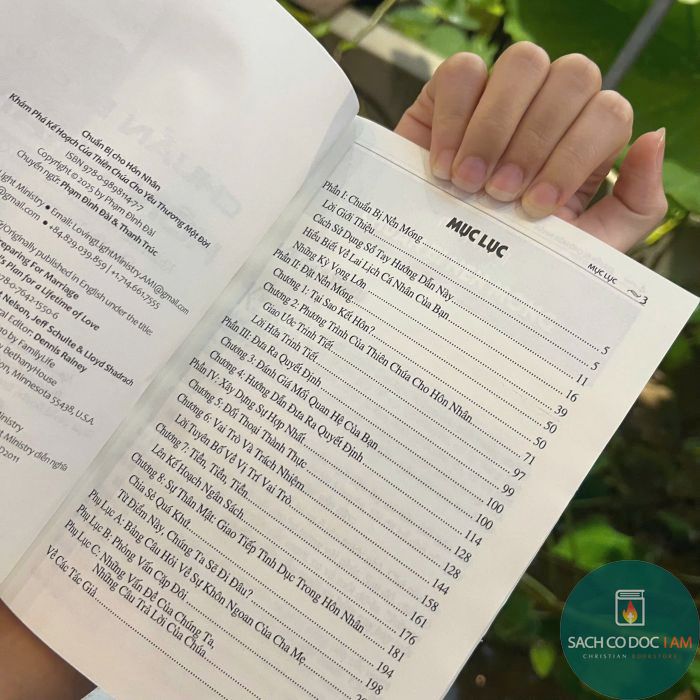 Chuẩn Bị cho Hôn Nhân
Khám Phá Kế Hoạch Của Thiên Chúa Cho Yêu Thương Một Đời
Copyright © 2025 by Phạm Đình Đài
Chuyển ngữ: Phạm Đình Đài & Thanh Trúc
Light Ministry • Email: LovingLightMinistry.AMI@gmail.com
@gmail.com • +84.829.059.859 | +1.714.661.7555
Originally published in English under the title:
Preparing For Marriage
God's Plan for a Lifetime of Love
Nelson, Jeff Schulte & Lloyd Shadrach
Editor: Dennis Rainey
by FamilyLife
BethanyHouse
Minnesota 55438, U.S.A
Ministry
Light Ministry diễn nghĩa
MỤC LỤC
3
MỤC LỤC
Phần I: Chuẩn Bị Nền Móng
Lời Giới Thiệu 5
Cách Sử Dụng Sổ Tay Hướng Dẫn Này 5
Hiểu Biết Về Lai Lịch Cá Nhân Của Bạn 11
Những Kỳ Vọng Lớn 16
Phần II: Đặt Nền Móng 39
Chương 1: Tại Sao Kết Hôn? 50
Chương 2: Phương Trình Của Thiên Chúa Cho Hôn Nhân 50
Giao Ước Trinh Tiết 71
Lời Hứa Trinh Tiết 97
Phần III: Đưa Ra Quyết Định 99
Chương 3: Đánh Giá Mối Quan Hệ Của Bạn 100
Chương 4: Hướng Dẫn Đưa Ra Quyết Định 100
Phần IV: Xây Dựng Sự Hợp Nhất 114
Chương 5: Đối Thoại Thành Thực 128
Chương 6: Vai Trò Và Trách Nhiệm 128
Lời Tuyên Bố Về Vị Trí Vai Trò 144
Chương 7: Tiền, Tiền, Tiền 158
Lên Kế Hoạch Ngân Sách 161
Chương 8: Sự Thân Mật: Giao Tiếp Tình Dục Trong Hôn Nhân 176
Chia Sẻ Quá Khứ 181
Từ Điển Này Chúng Ta Sẽ Đi Đâu? 194
Phụ Lục A: Bảng Câu Hỏi Về Sự Khôn Ngoan Của Cha Mẹ 198
Phụ Lục B: Phỏng Vấn Cặp Đôi
Phụ Lục C: Những Vấn Đề Của Chúng Ta,
Những Câu Trả Lời Của Chúa
Về Các Tác Giả
SACH CO DOC I AM
CHRISTIAN BOOKSTORE